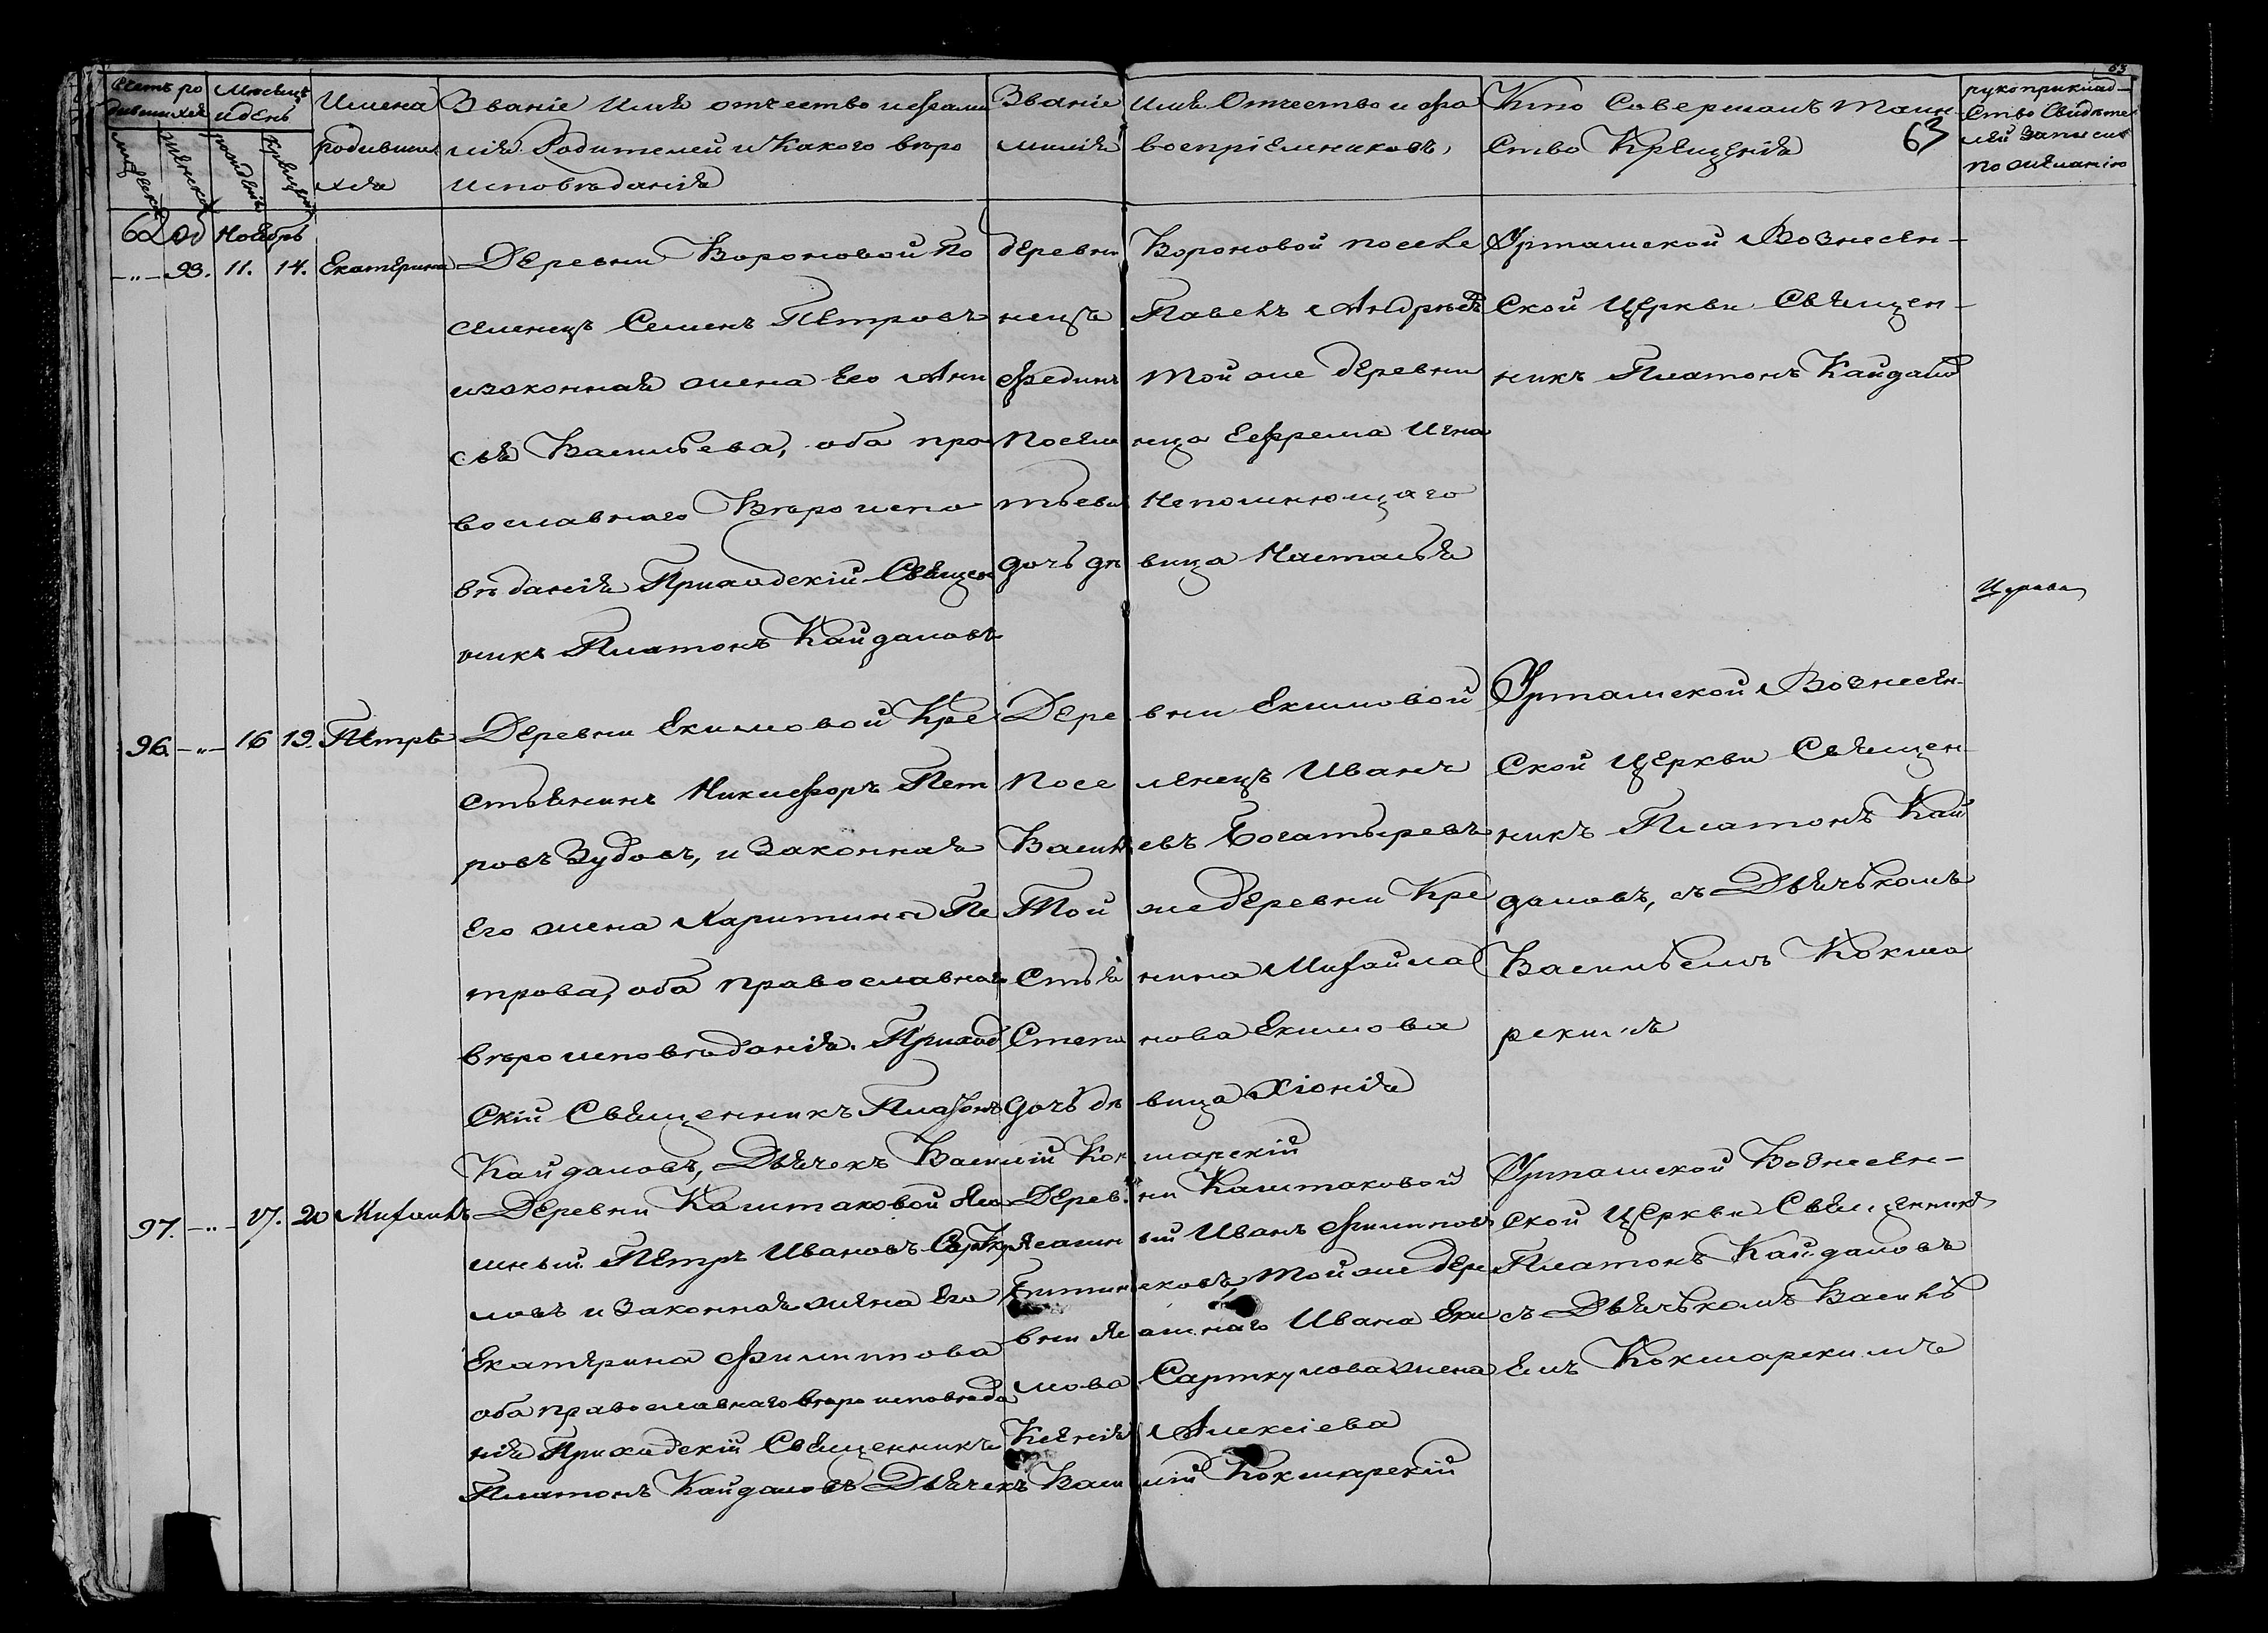 63
Счетъ ро
дившихся
Мѣсяцъ
и день
Имена
родивших
хся
Званіе Имя отчество и фами
лія Родителей и Какого вѣро
исповѣданія
Званіе
милія
имя Отчество и фа
воспріемниковъ,
Кто Совершалъ таин
Ство Крещенія
63
рукоприклад-
Ство Свидѣте
лей записи
по желанію
мужеска
женска
рожденія
крещенія
62 об
Ноябрь
-"- 93. 11. 14. Екатерина
Деревни Вороновой По
селенецъ Семенъ Петровъ
и законная жена Его Ани
сья Васильева, оба пра
вославнаго Вѣроиспо
вѣданія Приходскій Священ
никъ Платонъ Кайдаловъ
деревни Вороновой поселе
нецъ Павелъ Андрѣевъ
Федин той же деревни
Поселе нца Ефрема Игна
тьева Непомнющаго
дочь дѣ вица Наталья
Урташской Вознесен-
Ской Церкви Священ-
никъ Платонъ Кайдаловъ
96. -"- 16 19. Петръ
Деревни Екимовой Кре
стьянинъ Никифоръ Пет
ровъ Зудовъ, и Законная
Его жена Харитина Пе
трова, оба православнаго
вѣроисповѣданія. Приход
Скій Священникъ Платонъ
Кайдаловъ, Дьячекъ Василій Кок шарскій
Дере вни Екимовой
Посе ленецъ Иванъ
Василь евъ Богатыревъ
Той же деревни Кре
Стья нина Михайла
Степа нова Екимова
дочь дѣ вица Хіонія
Урташской Вознесен-
Ской Церкви Священ-
никъ Платонъ Кай
даловъ, съ Дьячькомъ
Васильемъ Кокша
рскимъ
97. -"- 17. 20 Михаилъ
Деревни Каштаковой Яса
шный Петръ Ивановъ Сартку
ловъ и Законная жена Его
Екатерина Филиппова
оба православнаго вѣроисповѣда
нія Приходскій Священникъ
Платонъ Кайдаловъ Дьячекъ Васи лій Кокшарскій
Дерев ни Каштаковой
Ясашн ый Иванъ Филиповъ
ковъ, той же дере
вни Яс ашнаго Ивана Еки
мова Сарткулова жена
Ксенія Алексіева
Урташской Вознесен-
ской Церкви Священникъ
Платонъ Кайдаловъ
съ Дьячькомъ Василь
емъ Кокшарскимъ